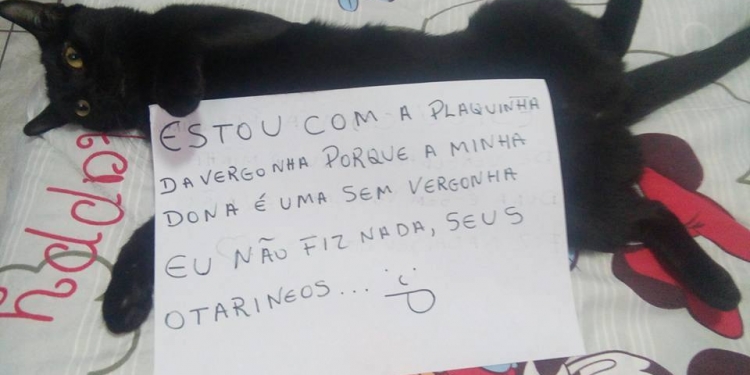 ESTOU COM A PLAQUINHA
DA VERGONHA PORQUE A MINHA
DONA É UMA SEM VERGONHA
EU NÃO FIZ NADA, SEUS
OTARINEOS...
happy